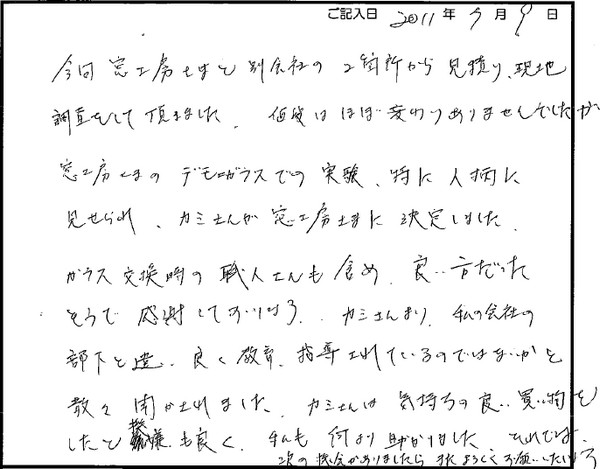 ご記入日 2011年5月9日
今回窓工房さまと別会社の2箇所から見積り、現地
調査をして頂きました。価格はほぼ変わりありませんでしたが
窓工房さまのデモガラスでの実験、特に人柄に
見せられ、カミさんが窓工房さまに決定しました。
ガラス交換時の職人さんも含め、良い方だった
そうで感謝しております。カミさんより、私の会社の
部下と違い良く教育、指導されているのではないかと
散々聞かされました。カミさんは気持ちの良い買い物を
したと機嫌も良く、私も何より助かりました。それでは、
次の機会がありましたらまたよろしくお願いします